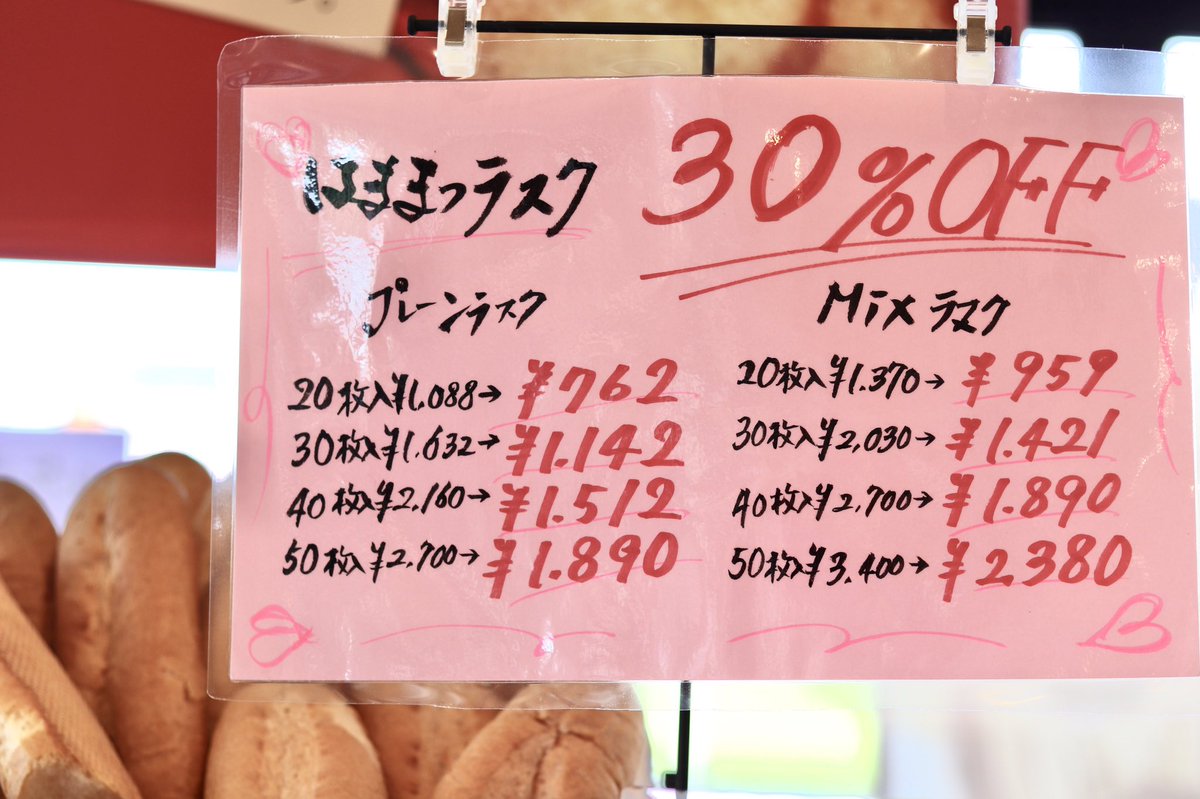 はままつラスク 30%OFF
プレーンラスク
20枚入¥1.088→¥762
30枚入¥1.632→¥1.142
40枚入¥2.160→¥1.512
50枚入¥2.700→¥1.890
Mixラスク
20枚入¥1.370→¥959
30枚入¥2.030→¥1.421
40枚入¥2.700→¥1.890
50枚入¥3.400→¥2380